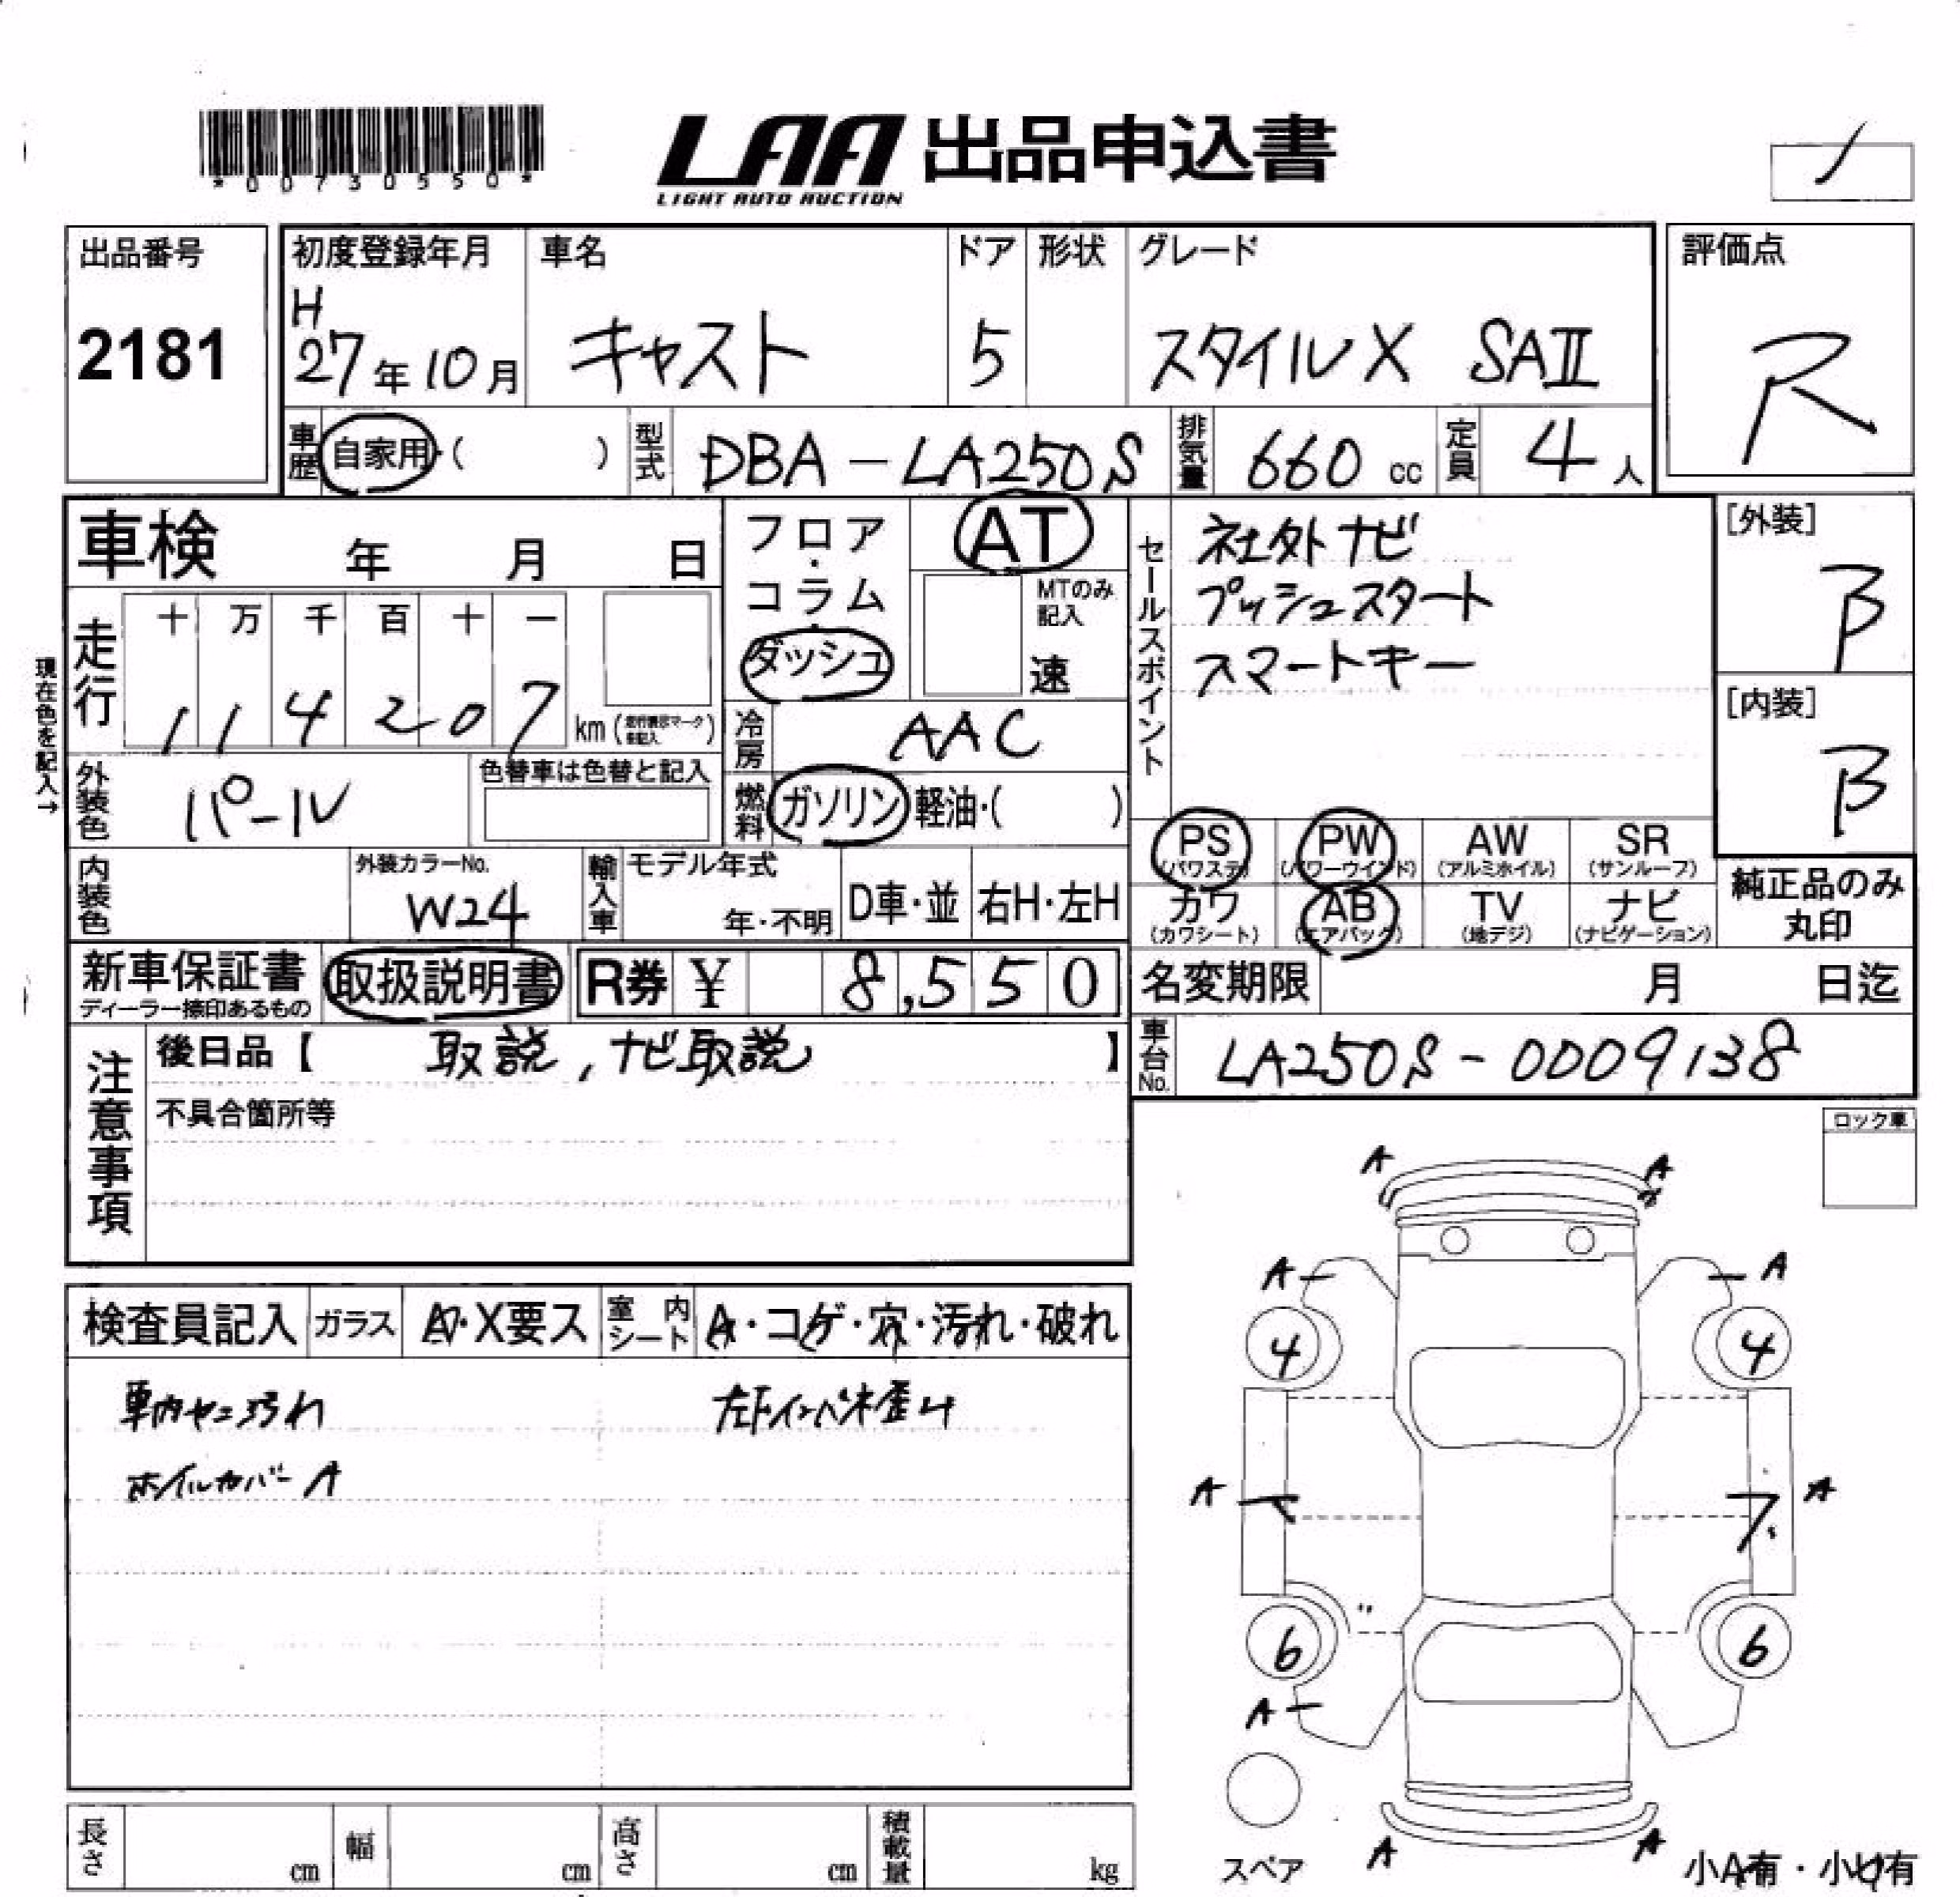 *00730550*
LAA 出品申込書
LIGHT AUTO AUCTION
出品番号
2181
初度登録年月
H
27年10月
車名
キャスト
ドア
5
形状
グレード
スタイルX SAⅡ
評価点
R
車歴
自家用・( )
型式
DBA-LA250S
排気量
660 cc
定員
4人
車検 年 月 日
現在色を記入→
走行
十 万 千 百 十 一
1 1 4 2 0 7
km
フロア・コラム・ダッシュ
AT
MTのみ記入
速
冷房
AAC
燃料
ガソリン 軽油・( )
セールスポイント
社外ナビ
プッシュスタート
スマートキー
[外装]
B
[内装]
B
外装色
パール
色替車は色替と記入
内装色
外装カラーNo.
W24
輸入車
モデル年式
年・不明
D車・並
右H・左H
PS
(パワステ)
PW
(パワーウインド)
AW
(アルミホイル)
SR
(サンルーフ)
カワ
(カワシート)
AB
(エアバック)
TV
(地デジ)
ナビ
(ナビゲーション)
純正品のみ
丸印
新車保証書
ディーラー捺印あるもの
取扱説明書
R券 ¥ 8,550
名変期限 月 日迄
注意事項
後日品【 取説,ナビ取説 】
不具合箇所等
車台No.
LA250S-0009138
ロック車
検査員記入
ガラス
A・X要ス
室内シート
A・コゲ・穴・汚れ・破れ
車内ヤニ汚れ
ホイルカバーA
A A
A A
4 4
A A
6 6
A
A A
スペア
小A有・小U有
長さ cm
幅 cm
高さ cm
積載量 kg